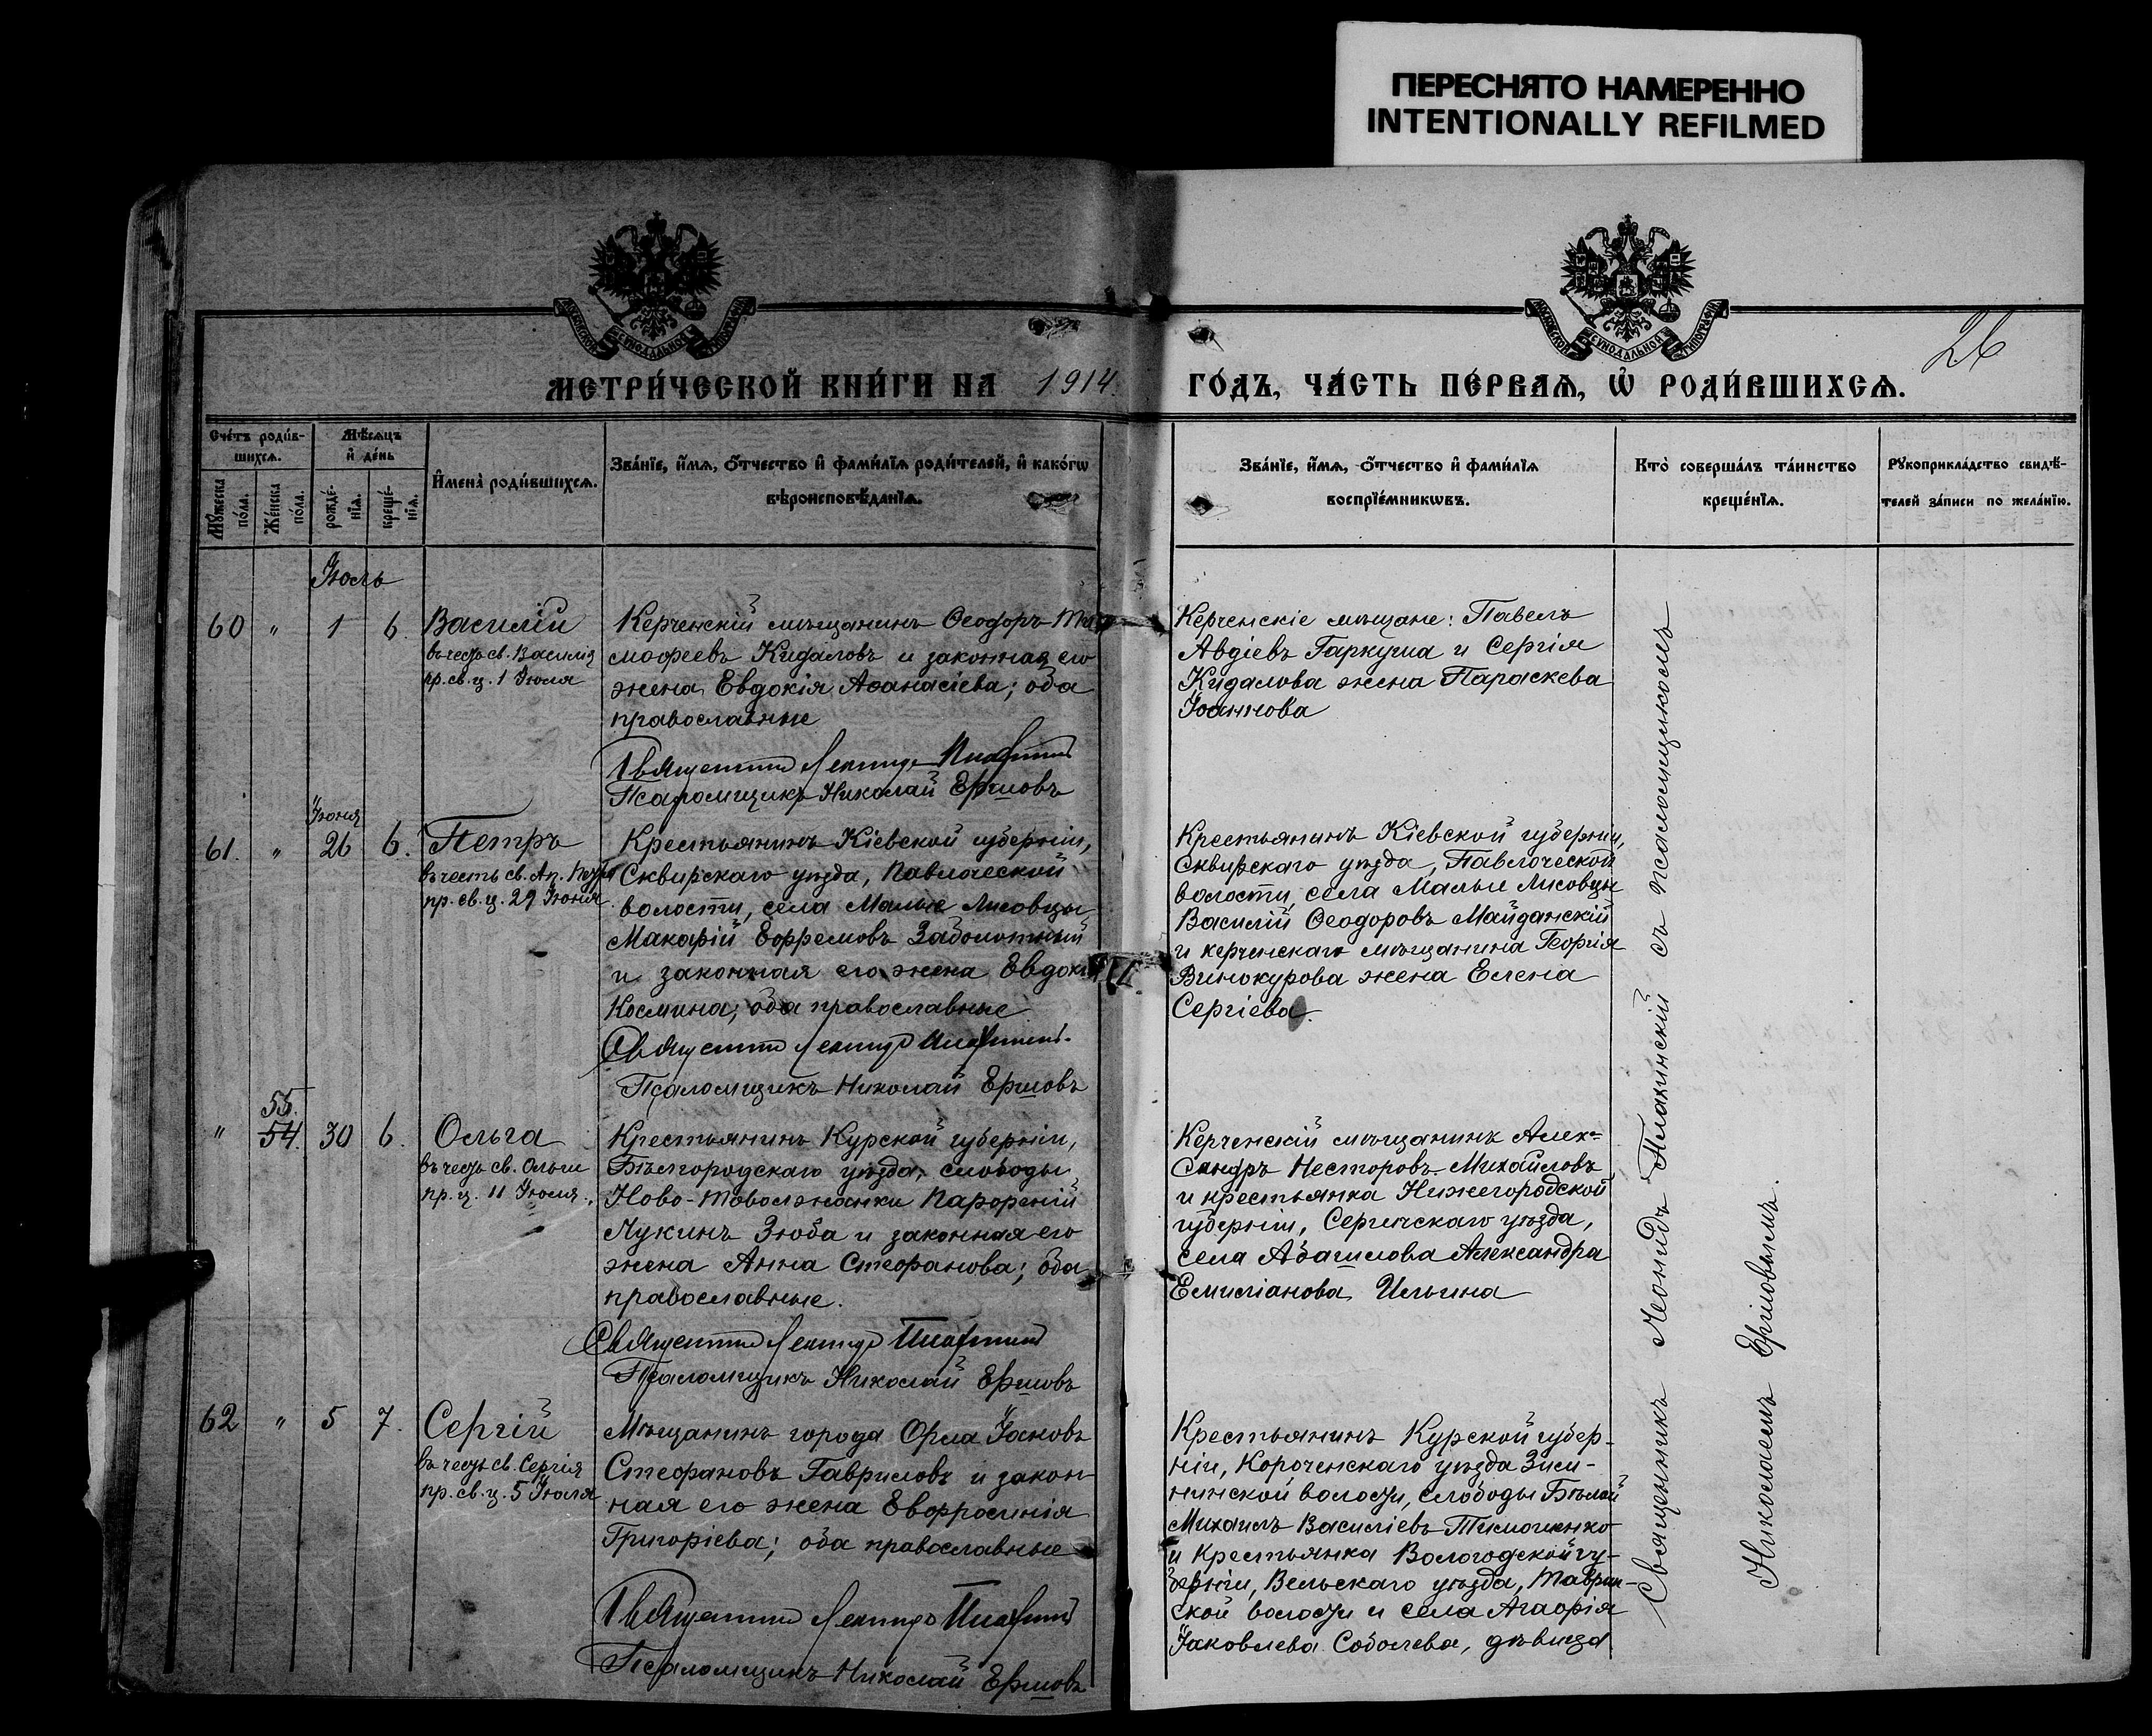 ПЕРЕСНЯТО НАМЕРЕННО
INTENTIONALLY REFILMED
МОСКОВСКОЙ СѴНОДАЛЬНОЙ ТИПОГРАФИИ
МОСКОВСКОЙ СѴНОДАЛЬНОЙ ТИПОГРАФИИ
26
МЕТРИ́ЧЕСКОЙ КНИ́ГИ НА 1914.
ГО́ДЪ, ЧА́СТЬ ПЕ́РВАѦ, Ѡ҆ РОДИ́ВШИХСѦ.
Сче́тъ роди́в-
шихсѧ.
Мѣ́сѧцъ
и҆ де́нь
Мꙋ́жеска
по́ла.
Же́нска
по́ла.
рожде́-
нїѧ.
креще́-
нїѧ.
И҆мена̀ роди́вшихсѧ.
Зва́нїе, и҆́мѧ, ѻ҆́тчество и҆ фами́лїѧ роди́телей, и҆ како́гѡ
вѣроисповѣ́данїѧ.
Зва́нїе, и҆́мѧ, ѻ҆́тчество и҆ фами́лїѧ
воспрїе́мникѡвъ.
Кто̀ соверша́лъ та́инство
креще́нїѧ.
Рꙋкоприкла́дство свидѣ́-
телей за́писи по жела́нїю.
Іюль
60 " 1 6 Василій
въ честь св. Василія
пр. св. ц. 1 Іюля
Керченскій мѣщанинъ Ѳеодоръ Ти
моѳеевъ Кидаловъ и законная его
жена Евдокія Аѳанасіева; оба
православные
Священникъ Леонидъ
Псаломщикъ Николай Ершовъ
Керченскіе мѣщане: Павелъ
Авдіевъ Гаркуша и Сергія
Кидалова жена Параскева
Іоаннова
Іюня
61. " 26 6. Петръ
въ честь св. Ап. Петра
пр. св. ц. 29 Іюня.
Крестьянинъ Кіевской губерніи,
Сквирскаго уѣзда, Паволоческой
волости, села Малые Лисовцы
Макарій Ефремовъ Заболотный
и законная его жена Евдокія
Космина; оба православные
Священникъ Леонидъ
Псаломщикъ Николай Ершовъ
Крестьянинъ Кіевской губерніи,
Сквирскаго уѣзда, Павлоческой
волости, села Малые Лисовцы
Василій Ѳеодоровъ Майданскій
и керченскаго мѣщанина Георгія
Винокурова жена Елена
Сергіева.
55.
" 54. 30 6. Ольга
въ честь св. Ольги
пр. ц. 11 Іюля.
Крестьянинъ Курской губерніи,
Бѣлгородскаго уѣзда, слободы
Ново-Таволжанки Парѳеній
Лукинъ Зюба и законная его
жена Анна Стефанова; оба
православные.
Священникъ Леонидъ
Псаломщикъ Николай Ершовъ
Керченскій мѣщанинъ Алек=
сандръ Несторовъ Михайловъ
и крестьянка Нижегородской
губерніи, Сергачскаго уѣзда,
села Абаимова Александра
Емиліанова Ильина
62 " 5 7. Сергій
въ честь св. Сергія
пр. св. ц. 5 Іюля
Мѣщанинъ города Орла Іаковъ
Стефановъ Гавриловъ и закон-
ная его жена Евфросинія
Григоріева; оба православные
Священникъ Леонидъ
Псаломщикъ Николай Ершовъ
Крестьянинъ Курской губер-
ніи, Короченскаго уѣзда
волости, слободы Бѣлой
Михаилъ Василіевъ Тимошенко
и крестьянка Вологодской гу-
берніи, Вельскаго уѣзда,
ской волости и села Агафія
Іаковлева Соболева, дѣвица
Священникъ Леонидъ Плакинскій съ псаломщикомъ
Николаемъ Ершовымъ.